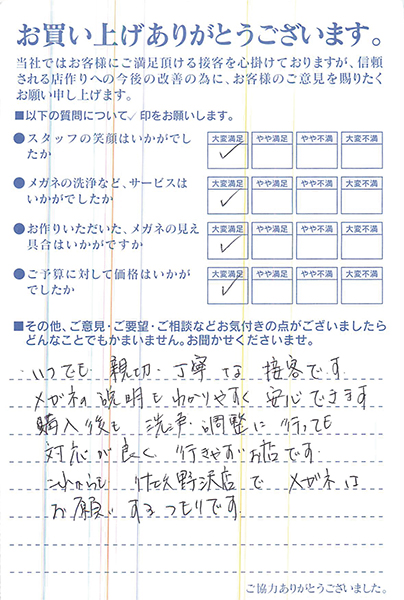 お買い上げありがとうございます。
当社ではお客様にご満足頂ける接客を心掛けておりますが、信頼
される店作りへの今後の改善の為に、お客様のご意見を賜りたく
お願い申し上げます。
■以下の質問について✓印をお願いします。
●スタッフの笑顔はいかがでし
たか
大変満足 やや満足 やや不満 大変不満
✓
●メガネの洗浄など、サービスは
いかがでしたか
大変満足 やや満足 やや不満 大変不満
✓
●お作りいただいた、メガネの見え
具合はいかがですか
大変満足 やや満足 やや不満 大変不満
✓
●ご予算に対して価格はいかが
でしたか
大変満足 やや満足 やや不満 大変不満
✓
■その他、ご意見・ご要望・ご相談などお気付きの点がございましたら
どんなことでもかまいません。お聞かせくださいませ。
いつでも 親切・丁寧な 接客です
メガネの説明もわかりやすく安心できます
購入後も 洗浄・調整に行っても
対応が良く 行きやすいお店です
これからも 佐久野沢店で メガネは
お願いするつもりです
ご協力ありがとうございました。